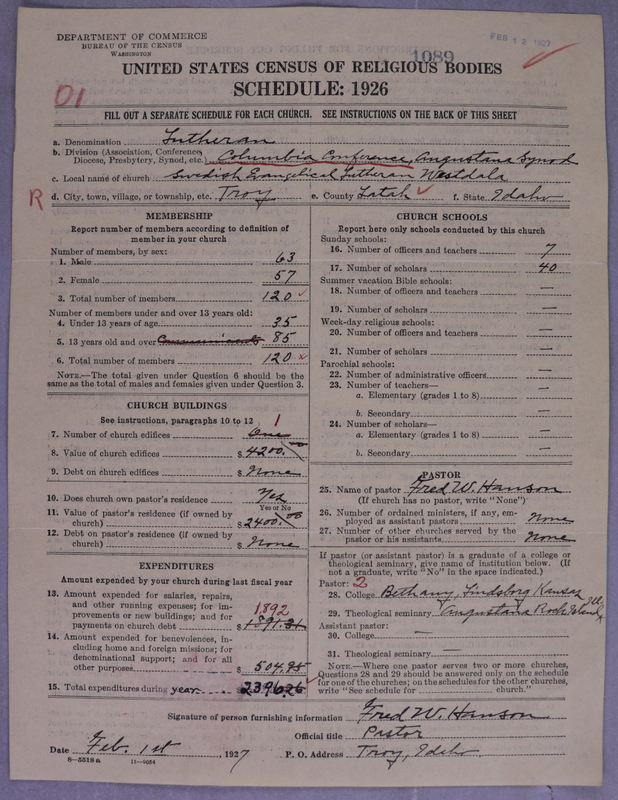 DEPARTMENT OF COMMERCE
BUREAU OF THE CENSUS
WASHINGTON
FEB 12 1927
1089
UNITED STATES CENSUS OF RELIGIOUS BODIES
SCHEDULE: 1926
01
FILL OUT A SEPARATE SCHEDULE FOR EACH CHURCH. SEE INSTRUCTIONS ON THE BACK OF THIS SHEET
a. Denomination Lutheran
b. Division (Association, Conference, Diocese, Presbytery, Synod, etc.) Columbia Conference, Augustana Synod
c. Local name of church Swedish Evangelical Lutheran Westdala
R d. City, town, village, or township, etc. Troy e. County Latah f. State Idaho
MEMBERSHIP
Report number of members according to definition of
member in your church
Number of members, by sex:
1. Male 63
2. Female 57
3. Total number of members 120
Number of members under and over 13 years old:
4. Under 13 years of age 35
5. 13 years old and over Communicants 85
6. Total number of members 120
NOTE.—The total given under Question 6 should be the
same as the total of males and females given under Question 3.
CHURCH BUILDINGS
See instructions, paragraphs 10 to 12
7. Number of church edifices One 1
8. Value of church edifices $ 4200.00
9. Debt on church edifices $ None
10. Does church own pastor's residence Yes
Yes or No
11. Value of pastor's residence (if owned by
church) $ 2400.00
12. Debt on pastor's residence (if owned by
church) $ None
EXPENDITURES
Amount expended by your church during last fiscal year
13. Amount expended for salaries, repairs,
and other running expenses; for im-
provements or new buildings; and for 1892
payments on church debt $ 1891.31
14. Amount expended for benevolences, in-
cluding home and foreign missions; for
denominational support; and for all
other purposes $ 504.95
15. Total expenditures during year $ 2396.26
CHURCH SCHOOLS
Report here only schools conducted by this church
Sunday schools:
16. Number of officers and teachers 7
17. Number of scholars 40
Summer vacation Bible schools:
18. Number of officers and teachers —
19. Number of scholars —
Week-day religious schools:
20. Number of officers and teachers —
21. Number of scholars —
Parochial schools:
22. Number of administrative officers —
23. Number of teachers—
a. Elementary (grades 1 to 8) —
b. Secondary —
24. Number of scholars—
a. Elementary (grades 1 to 8) —
b. Secondary —
PASTOR
25. Name of pastor Fred W. Hanson
(If church has no pastor, write "None")
26. Number of ordained ministers, if any, em-
ployed as assistant pastors None
27. Number of other churches served by the
pastor or his assistants None
If pastor (or assistant pastor) is a graduate of a college or
theological seminary, give name of institution below. (If
not a graduate, write "No" in the space indicated.)
Pastor: 2
28. College Bethany, Lindsborg Kansas
29. Theological seminary Augustana Rock Island Ill.
Assistant pastor:
30. College —
31. Theological seminary —
NOTE.—Where one pastor serves two or more churches,
Questions 28 and 29 should be answered only on the schedule
for one of the churches; on the schedules for the other churches,
write "See schedule for church."
Signature of person furnishing information Fred W. Hanson
Official title Pastor
Date Feb. 1st, 1927 P. O. Address Troy, Idaho
8—5518a 11—9054